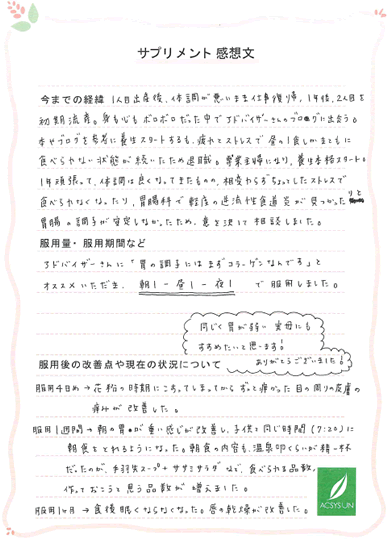 サプリメント 感想文
今までの経緯 1人目出産後、体調が悪いまま仕事復帰、1年後、2人目を
初期流産。身も心もボロボロだった中でアドバイザーさんのブログに出会う。
本やブログを参考に養生スタートするも、疲れとストレスで昼の1食しかまともに
食べられない状態が続いたため退職。専業主婦になり、養生本格スタート。
1年頑張って、体調は良くなってきたものの、相変わらずちょっとしたストレスで
食べられなくなったり、胃腸科で軽度の逆流性食道炎が見つかったりと
胃腸の調子が安定しなかったため、意を決して相談しました。
服用量・服用期間など
アドバイザーさんに「胃の調子にはまずコラーゲンなんです」と
オススメいただき、朝1-昼1-夜1 で服用しました。
同じく胃が弱い実母にも
すすめたいと思います!
ありがとうございました!
服用後の改善点や現在の状況について
服用4日め→花粉の時期にこすってしまってからずっと痒かった目の周りの皮膚の
痛みが改善した。
服用1週間→朝の胃が重い感じが改善し、子供と同じ時間(7:20)に
朝食をとれるようになった。朝食の内容も、温泉卵くらいが精一杯
だったのが、手羽先スープ+ササミサラダなど、食べられる品数、
作っておこうと思う品数が増えました。
服用1ヶ月→食後眠くならなくなった。唇の乾燥が改善した。
ACSYSUN